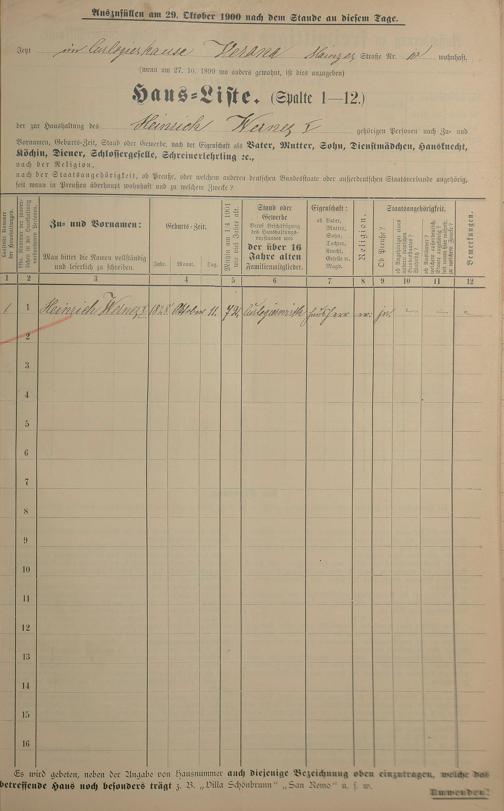 Auszufüllen am 29. Oktober 1900 nach dem Stande an diesem Tage.
Jetzt im Curlogierhause Verona Mainzer Straße Nr. wohnhaft.
(wenn am 27. 10. 1899 wo anders gewohnt, ist dies anzugeben)
Haus-Liste. (Spalte 1—12.)
der zur Haushaltung des Heinrich Werner gehörigen Personen nach Zu- und
Vornamen, Geburts-Zeit, Stand oder Gewerbe, nach der Eigenschaft als Vater, Mutter, Sohn, Dienstmädchen, Hausknecht,
Köchin, Diener, Schlossergeselle, Schreinerlehrling ꝛc.,
nach der Religion,
nach der Staatsangehörigkeit, ob Preuße, oder welchem anderen deutschen Bundesstaate oder außerdeutschen Staatsverbande angehörig,
seit wann in Preußen überhaupt wohnhaft und zu welchem Zwecke?
Zu- und Vornamen:
Man bittet die Namen vollständig
und leserlich zu schreiben.
Geburts-Zeit.
Jahr. Monat. Tag.
Stand oder
Gewerbe
der über 16
Jahre alten
Familienmitglieder.
Eigenschaft:
ob Vater,
Mutter,
Sohn,
Tochter,
Knecht,
Geselle u.
Magd.
Religion.
Staatsangehörigkeit.
Ob Preuße?
Bemerkungen.
1 2 3 4 5 6 7 8 9 10 11 12
1 1 Heinrich Werner 1828 Oktober 11. Hausherr ev. ja — —
2
3
4
5
6
7
8
9
10
11
12
13
14
15
16
Es wird gebeten, neben der Angabe von Hausnummer auch diejenige Bezeichnung oben einzutragen, welche das
betreffende Haus noch besonders trägt z. B. „Villa Schönbrunn“ „San Remo“ u. s. w.
Umwenden!